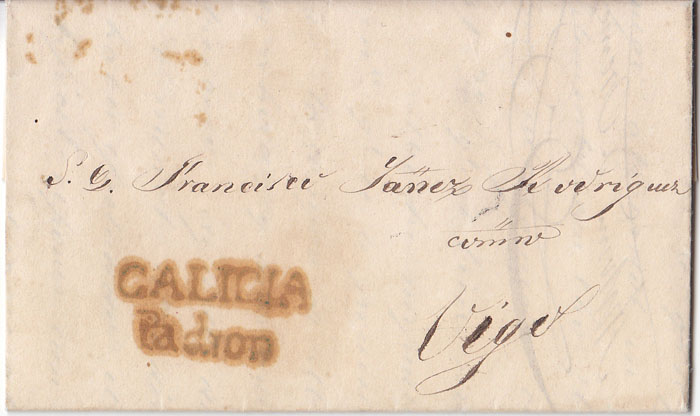 S. D. Francisco Yáñez Rodriguez
Vigo
GALICIA
Padron